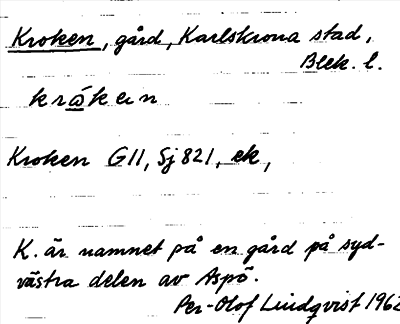 Kroken, gård, Karlskrona stad,
Blek. l.
kråkeın
Kroken G11, Sj 821, ek,
K. är namnet på en gård på syd-
västra delen av Aspö.
Per-Olof Lindqvist 1962